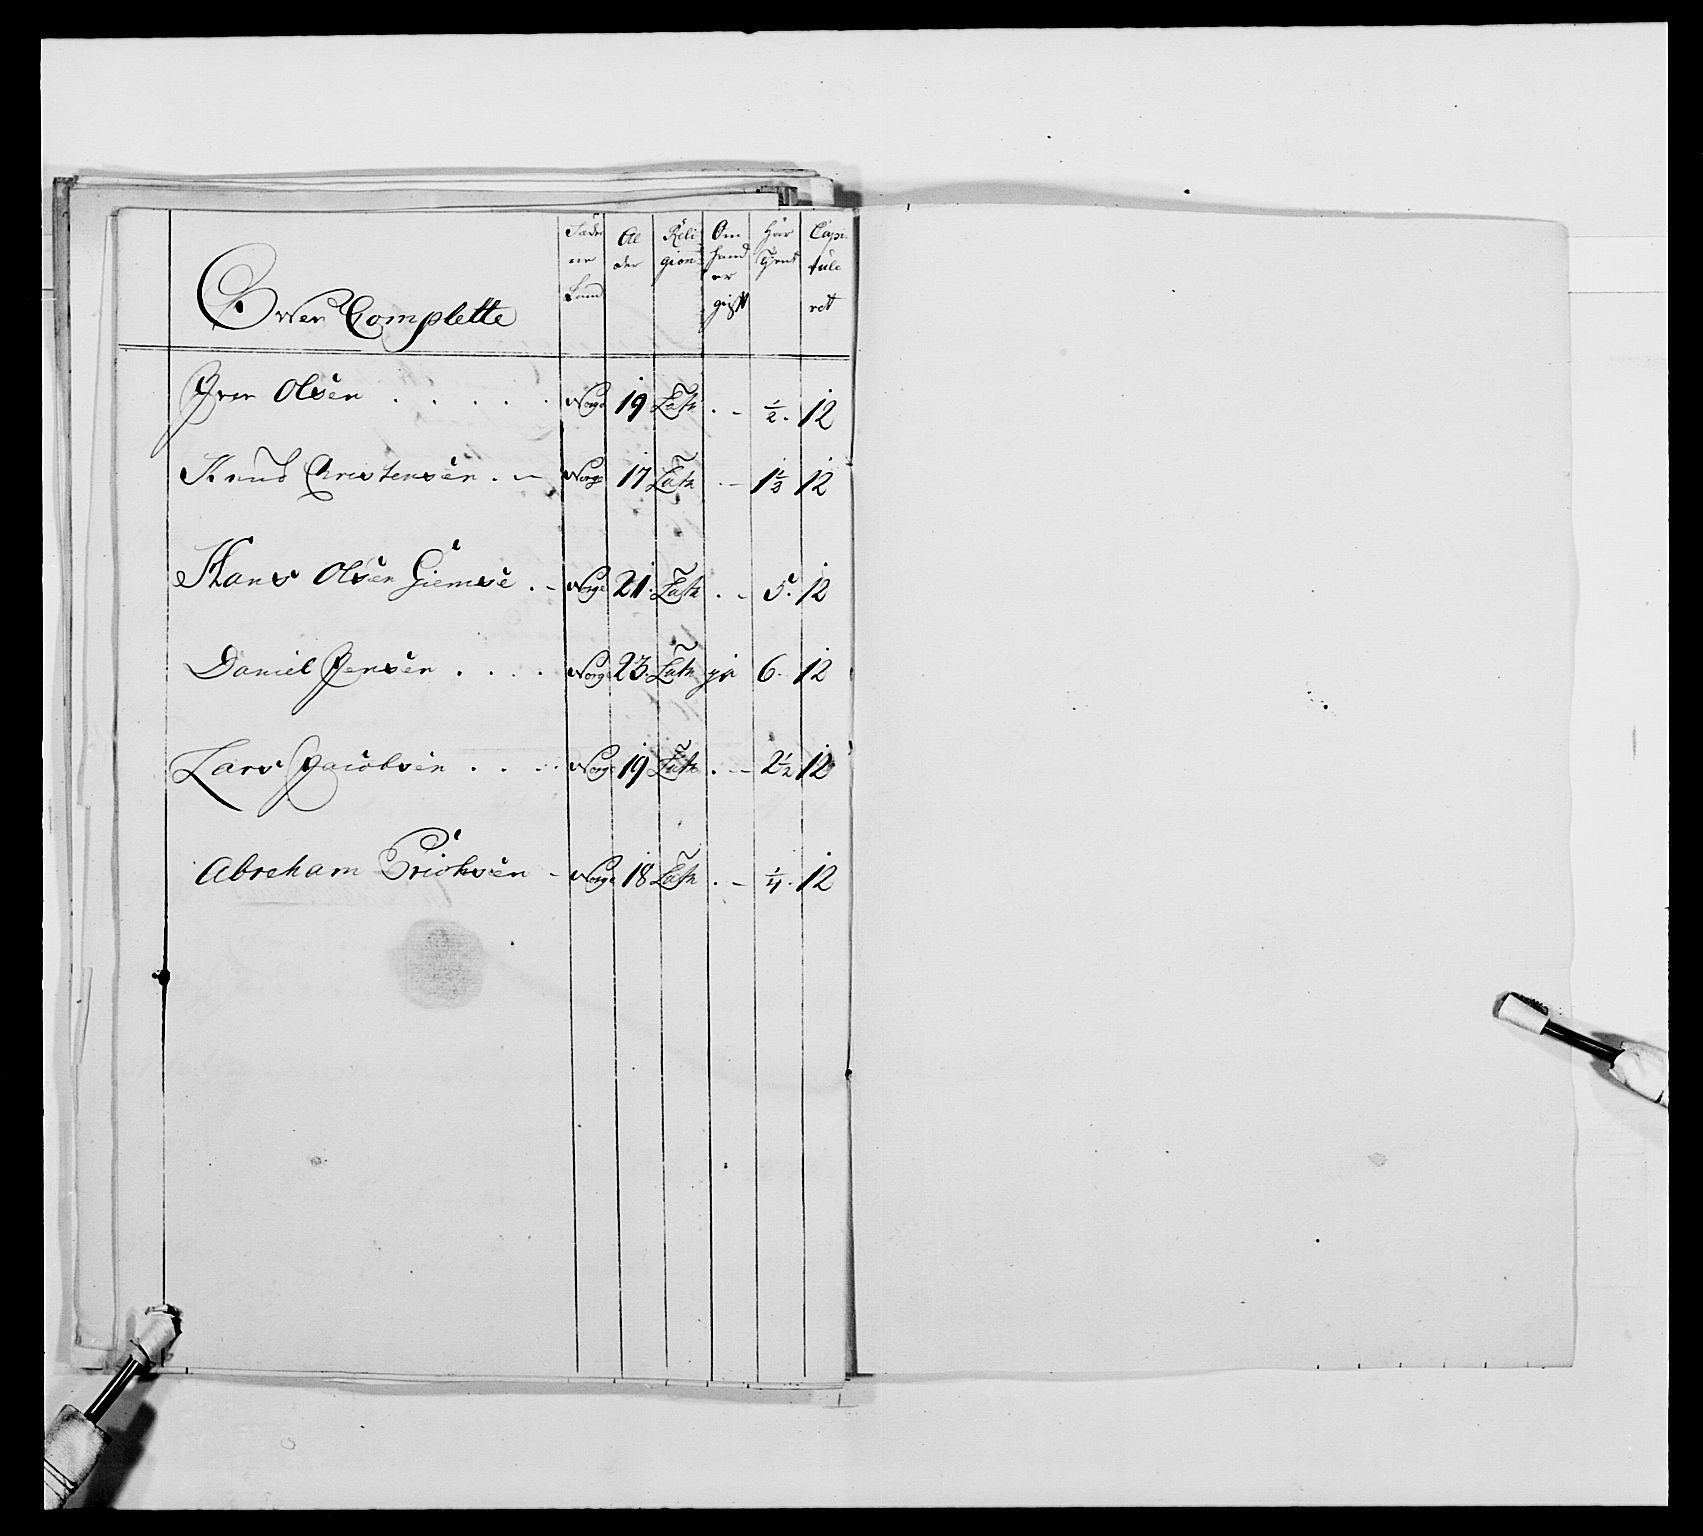 Over Complette | Fædrene Land | Alder | Religion | Om hand er gift | Har Tient | Capituleret
Iver Olsen . . . . . Norge 19 Luth . – 1/2 . 12
Knud Christensen . – Norge 17 Luth . – 1 1/2 12
Hans Olsen Giemse . – Norge 21 Luth . – 5 . 12
Daniel Jensen . . . . Norge 23 Luth ja 6 . 12
Lars Jacobsen . . . . Norge 19 Luth . – 2 1/2 12
Abreham Erichsen – Norge 18 Luth . – 1/4 . 12